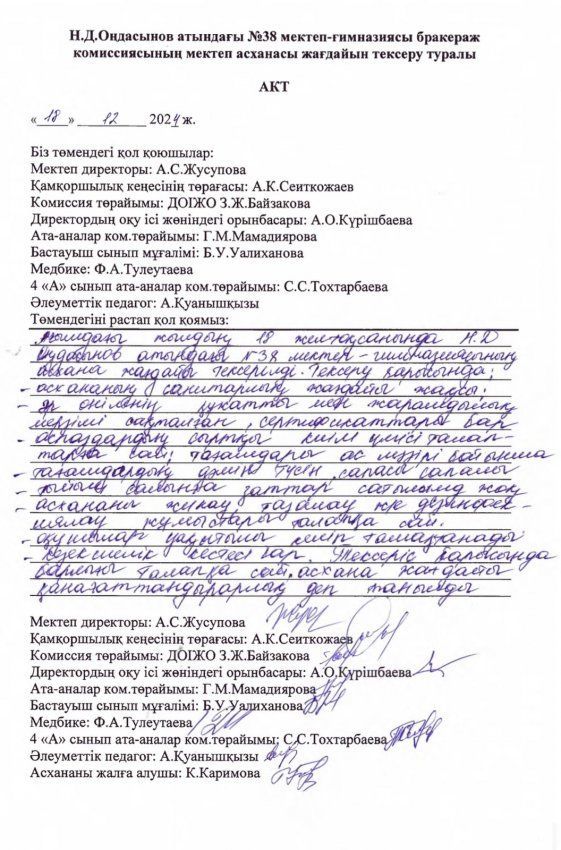 Н.Д.Оңдасынов атындағы №38 мектеп-гимназиясы бракераж
комиссиясының мектеп асханасы жағдайын тексеру туралы
АКТ
« 18 » 12 2024 ж.
Біз төмендегі қол қоюшылар:
Мектеп директоры: А.С.Жусупова
Қамқоршылық кеңесінің төрағасы: А.К.Сеиткожаев
Комиссия төрайымы: ДОІЖО З.Ж.Байзакова
Директордың оқу ісі жөніндегі орынбасары: А.О.Күрішбаева
Ата-аналар ком.төрайымы: Г.М.Мамадиярова
Бастауыш сынып мұғалімі: Б.У.Уалиханова
Медбике: Ф.А.Тулеутаева
4 «А» сынып ата-аналар ком.төрайымы: С.С.Тохтарбаева
Әлеуметтік педагог: А.Қуанышқызы
Төмендегіні растап қол қоямыз:
жылдың 18 желтоқсанында Н.Д
атындағы N38 мектеп-гимназиясының
асхана жағдайы тексерілді. Тексеру барысында:
- асхананың санитарлық жағдайы жақсы.
өнімнің құжатты мен жарамдылық
мерзімі сақталған, сертификаттары бар
- аспаздардың сыртқы киім үлгісі талап-
тарға сай, тағамдары ас мәзірі бойынша
- тағамдардың дәмін, түсін, сапасы сапалы
- тыйым салынған заттар сатылымда жоқ
- асхананы жинау, тазалау және дезинфек-
циялау жұмыстары талапқа сай.
- оқушылар уақытылы келіп тамақтанады
- Кезекшілік кестесі бар. Тексеріс барысында
барлығы талапқа сай, асхана жағдайы
қанағаттандырарлық деп танылды
Мектеп директоры: А.С.Жусупова
Қамқоршылық кеңесінің төрағасы: А.К.Сеиткожаев
Комиссия төрайымы: ДОІЖО З.Ж.Байзакова
Директордың оқу ісі жөніндегі орынбасары: А.О.Күрішбаева
Ата-аналар ком.төрайымы: Г.М.Мамадиярова
Бастауыш сынып мұғалімі: Б.У.Уалиханова
Медбике: Ф.А.Тулеутаева
4 «А» сынып ата-аналар ком.төрайымы: С.С.Тохтарбаева
Әлеуметтік педагог: А.Қуанышқызы
Асхананы жалға алушы: К.Каримова